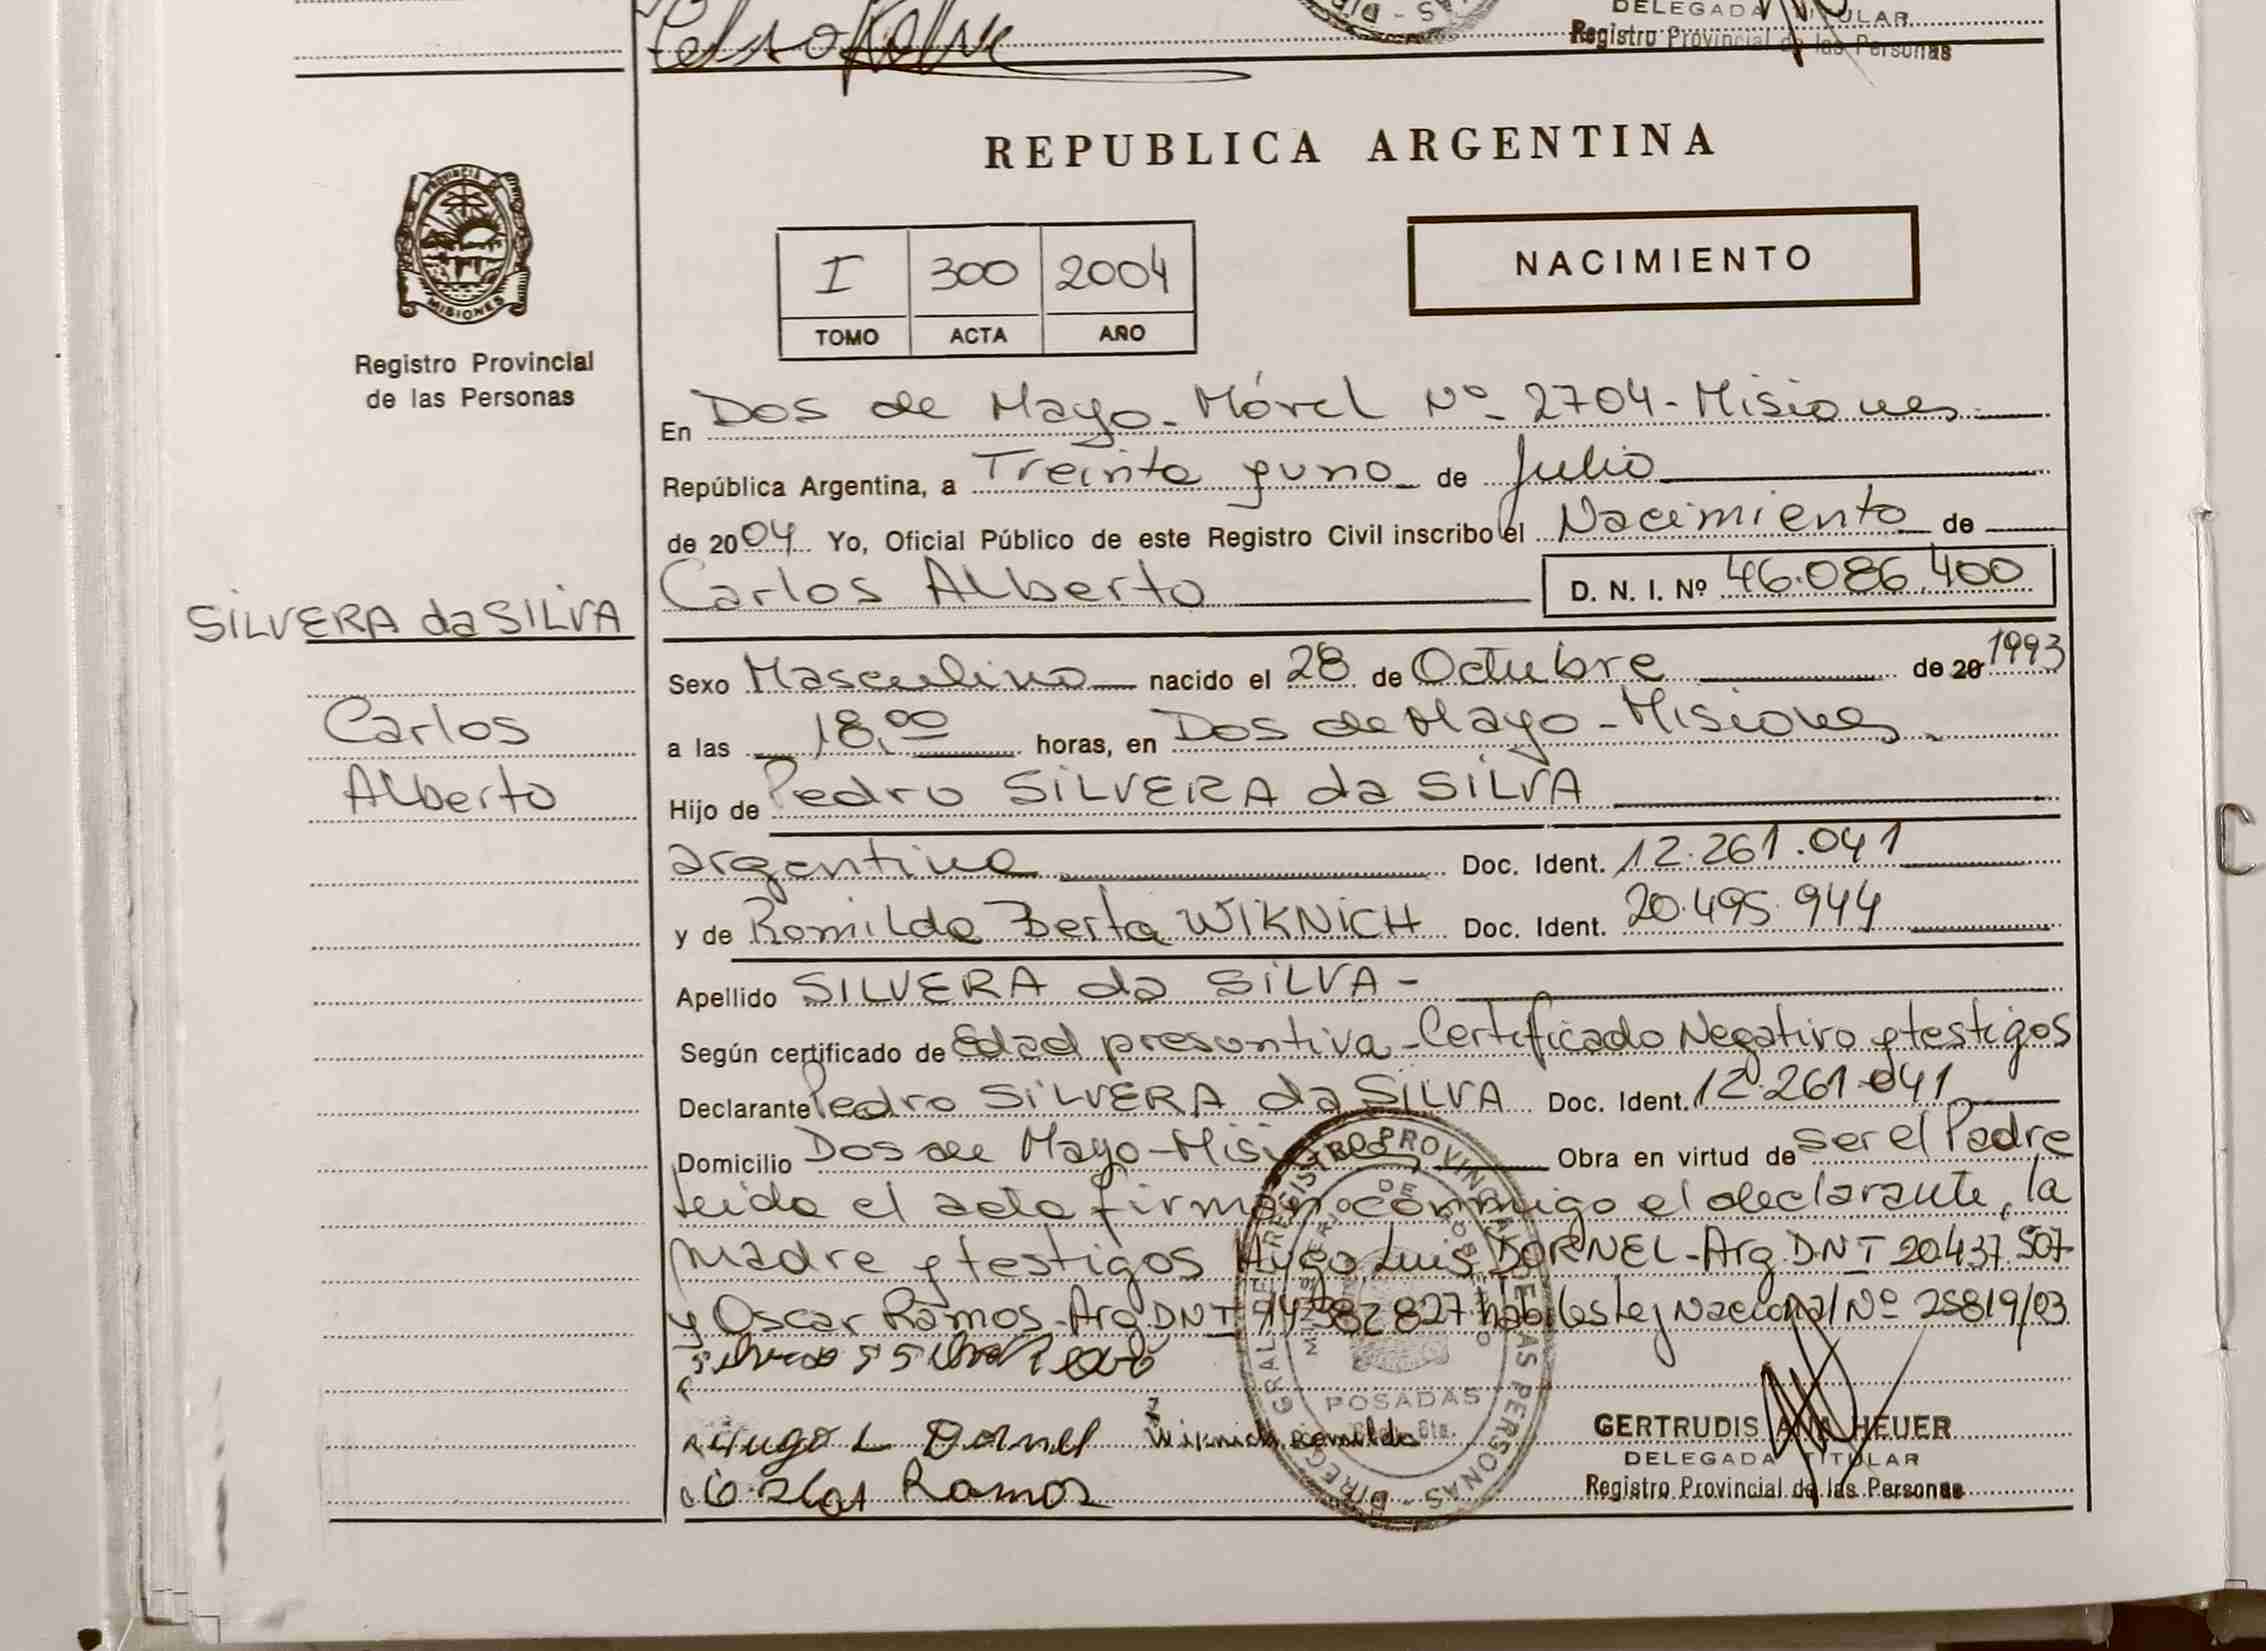 DELEGADA TITULAR
Registro Provincial de las Personas
REPUBLICA ARGENTINA
PROVINCIA DE
MISIONES
Registro Provincial
de las Personas
I 300 2004
TOMO ACTA AÑO
NACIMIENTO
En Dos de Mayo - Móvel Nº - 2704 - Misiones
República Argentina, a Treinta y uno de Julio
de 2004 Yo, Oficial Público de este Registro Civil inscribo el Nacimiento de
Carlos Alberto D. N. I. Nº 46.086.400
SILVERA da SILVA
Carlos
Alberto
Sexo Masculino nacido el 28 de Octubre de 20 1993
a las 18,00 horas, en Dos de Mayo - Misiones.
Hijo de Pedro SILVERA da SILVA
argentino Doc. Ident. 12.261.041
y de Romilda Berta WIKNICH Doc. Ident. 20.495.944
Apellido SILVERA da SILVA -
Según certificado de Edad presuntiva - Certificado Negativo y testigos
Declarante Pedro SILVERA da SILVA Doc. Ident. 12.261.041
Domicilio Dos de Mayo - Misiones Obra en virtud de ser el Padre
Leida el acta firman conmigo el declarante, la
Madre y testigos Hugo Luis DORNEL - Arg. DNI 20.437.507
y Oscar Ramos - Arg. DNI habiles Ley Nacional Nº 25819/03
Hugo L Dornel Wiknich Romilda
Ramos
POSADAS
GERTRUDIS ANA HEUER
DELEGADA TITULAR
Registro Provincial de las Personas